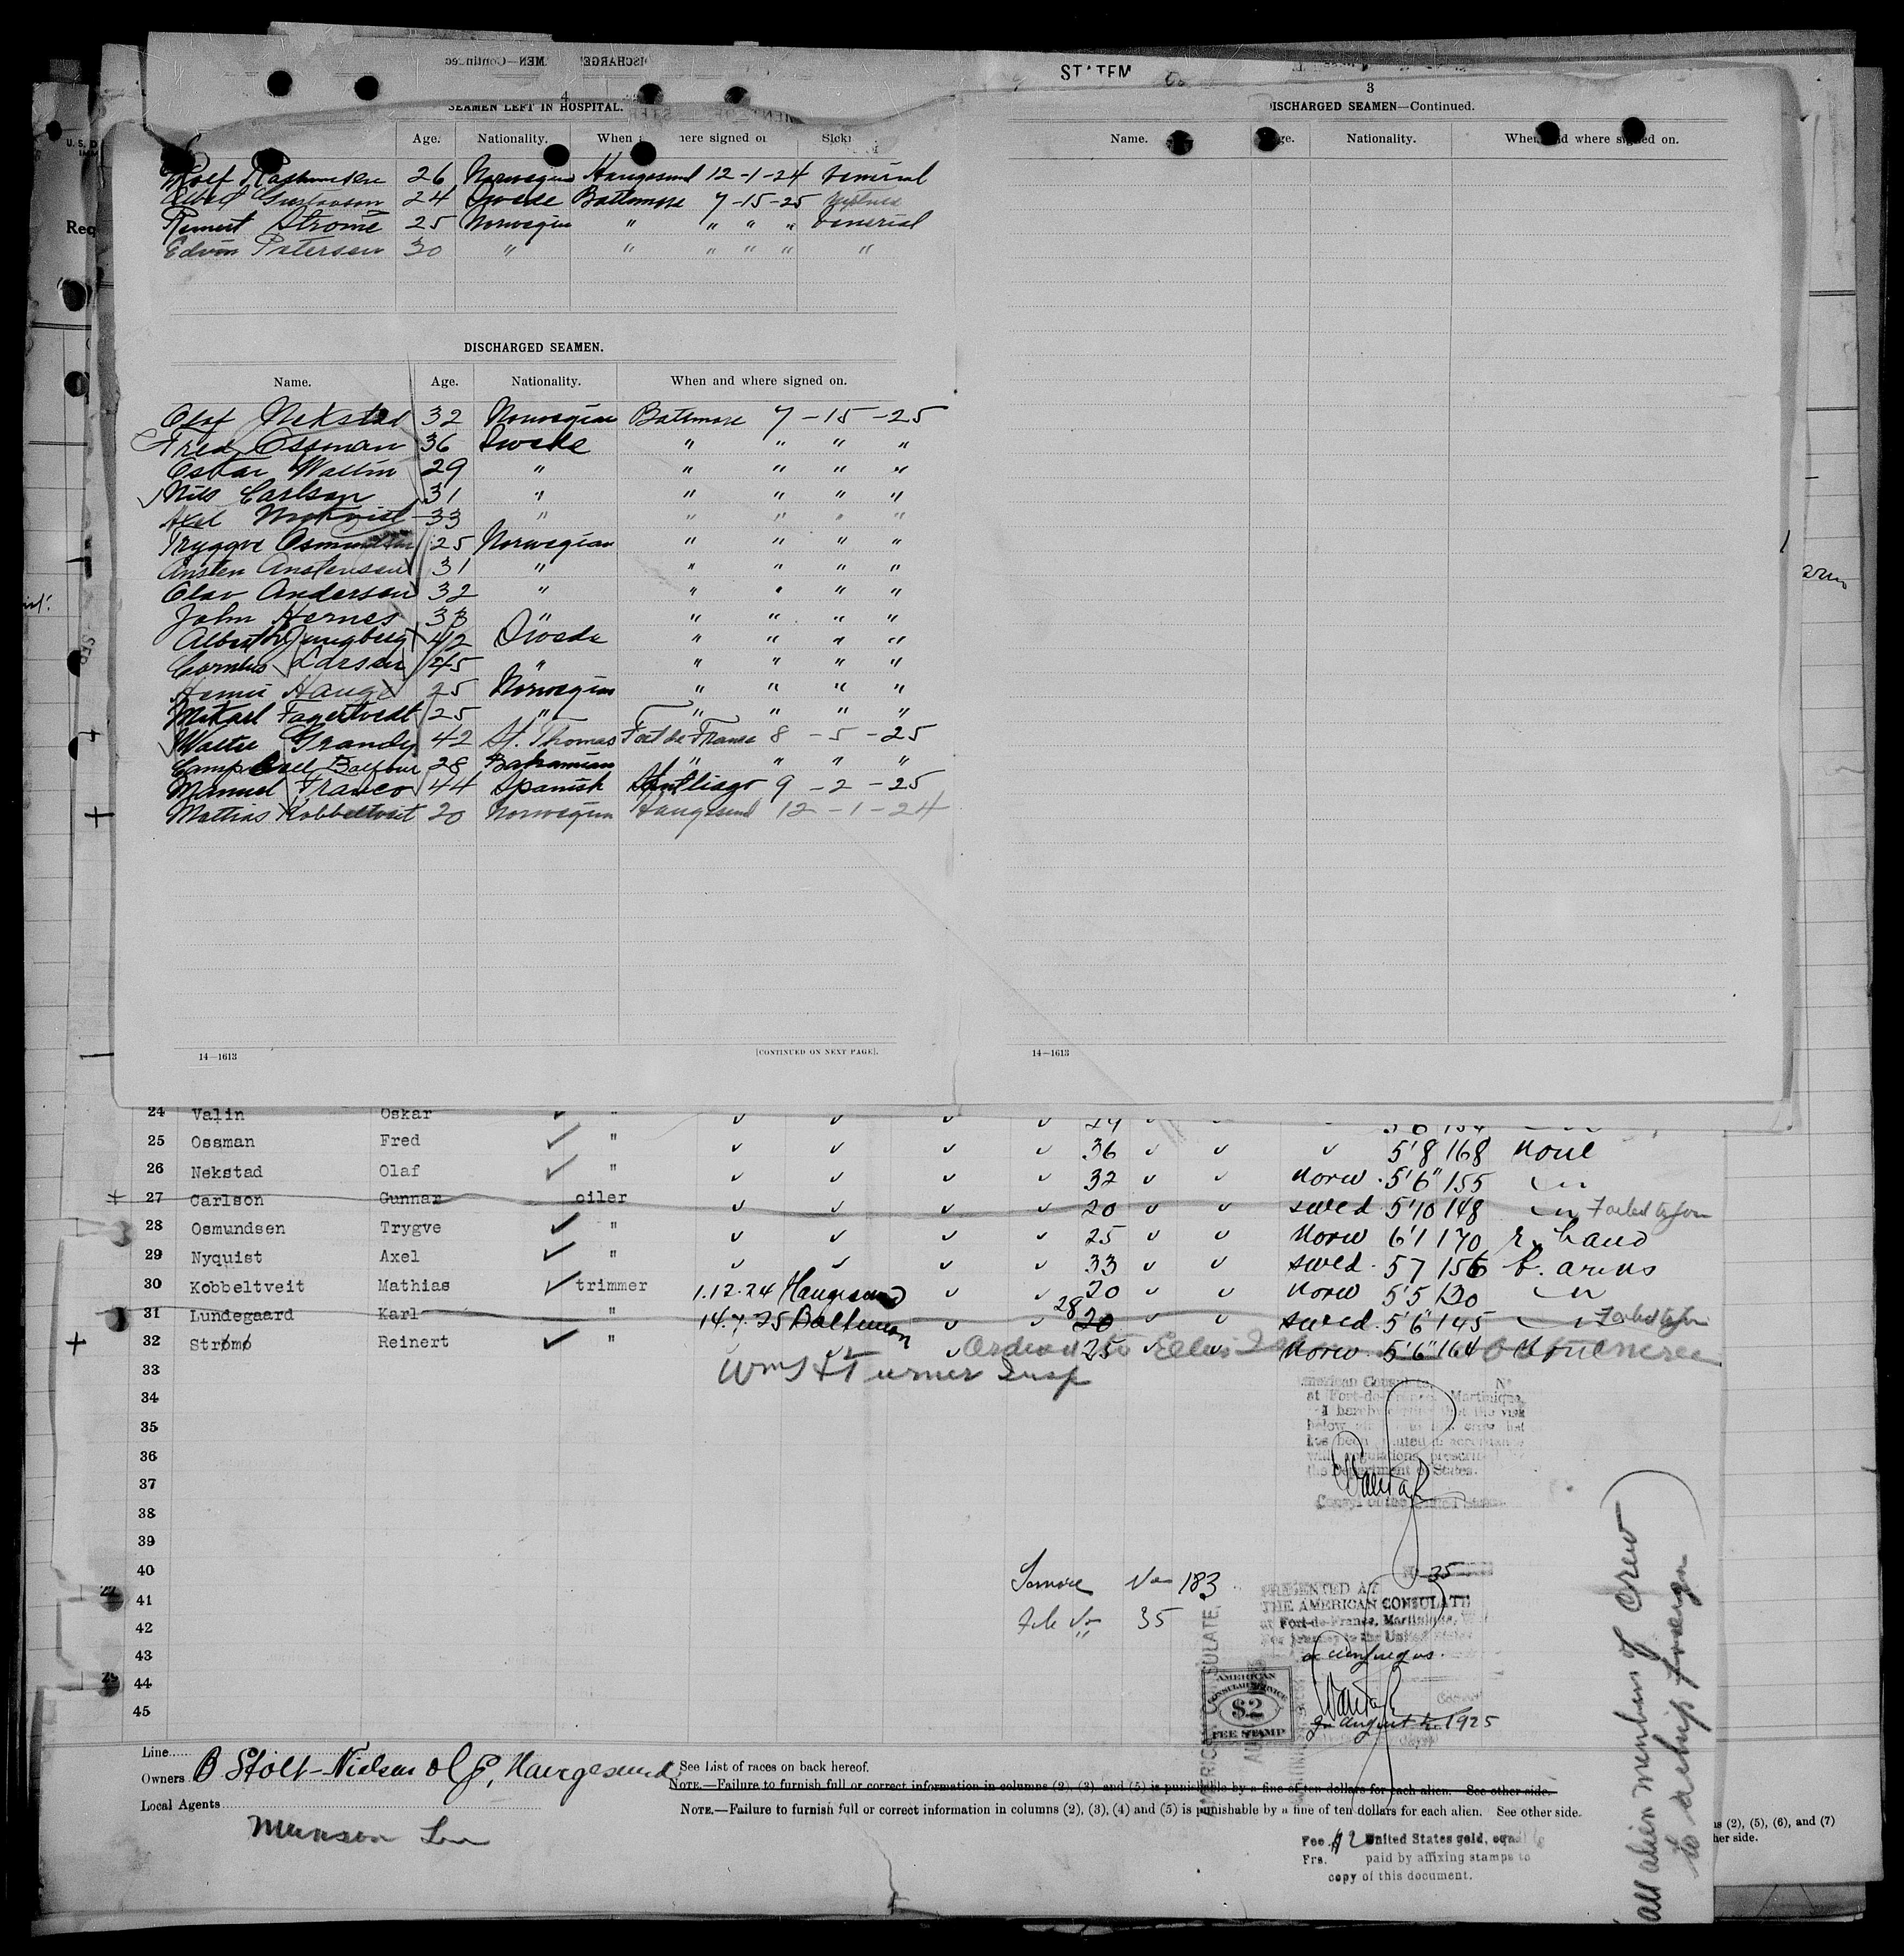 4
SEAMEN LEFT IN HOSPITAL.
Age. Nationality. When ere signed on
Rolf 26 Norwegian Haugesund 12-1-24 Venerial
Gustavson 24 Swede Baltimore 7-15-25
Reinert Strome 25 Norwegian " " " " Venerial
Edvin Petersen 30 " " " " " "
DISCHARGED SEAMEN.
Name. Age. Nationality. When and where signed on.
Olaf Nekstad 32 Norwegian Baltimore 7-15-25
Fred Ossman 36 Swede " " " "
Oskar Wallin 29 " " " " "
Nils Carlson 31 " " " " "
Axel 33 " " " " "
Tryggve Osmundsen 25 Norwegian " " " "
Ansten Anstensen 31 " " " " "
Olav Anderson 32 " " " " "
John Hernes 33 " " " " "
Albert Ljungberg 42 Swede " " " "
Cornelius Larsen 45 " " " " "
Hauge 25 Norwegian " " " "
Mikael Fagertvedt 25 " " " " "
Walter Grandy 42 St. Thomas Fort de France 8-5-25
Campbell Balfour 28 Bahamian " " " "
Manuel Franco 44 Spanish Santiago 9-2-25
Mattias Kobbeltveit 20 Norwegian Haugesund 12-1-24
14—1613 [CONTINUED ON NEXT PAGE].
STATEM
3
DISCHARGED SEAMEN—Continued.
Name. Age. Nationality. When and where signed on.
14—1613
24 Valin Oskar "
25 Ossman Fred " 36 5'8 168 none
26 Nekstad Olaf " 32 norw. 5'6" 155
27 Carlson Gunnar oiler 20 swed 5'10 148 Failed to join
28 Osmundsen Trygve " 25 norw 6'1 170 r. hand
29 Nyquist Axel " 33 swed. 5 7 156 b. arms
30 Kobbeltveit Mathias trimmer 1.12.24 Haugesund 20 norw 5'5 130
31 Lundegaard Karl " 14.7.25 Baltimore 28 20 swed. 5'6" 145 Failed to join
32 Strømø Reinert " 25 norw. 5'6" 164
Ordered to Ellis
33 Wm H Turner Insp
34
35
36
37
38
39
40
41
42
43
44
45
American Consulate,
at Fort-de-France, Martinique,
I hereby that the visa
below
has been in accordance
with regulations prescri
the Department of States.
Consul of the United States
Service No 183
File No 35
No 35
PRESENTED AT
THE AMERICAN CONSULATE
at Fort-de-France, Martinique,
For journey to the United States
Cienfuegos.
AMERICAN
CONSULAR SERVICE
$2
FEE STAMP
AMERICAN CONSULATE,
August 1925
Line
Owners B Stolt-Nielsen Haugesund
Local Agents
Munson Line
See List of races on back hereof.
NOTE.—Failure to furnish full or correct information in columns (2), (3), and (5) is punishable by a fine of ten dollars for each alien. See other side.
NOTE.—Failure to furnish full or correct information in columns (2), (3), (4) and (5) is punishable by a fine of ten dollars for each alien. See other side.
Fee $2 United States gold, equal to
Frs. paid by affixing stamps to
copy of this document.
all alien members of crew
ns (2), (5), (6), and (7)
her side.